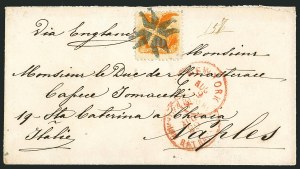 Via England
Monsieur
Monsieur le Duc de Monasterace
Capece Tomacelli
19 Sta Caterina a Chiaia
Naples
Italie
YORK